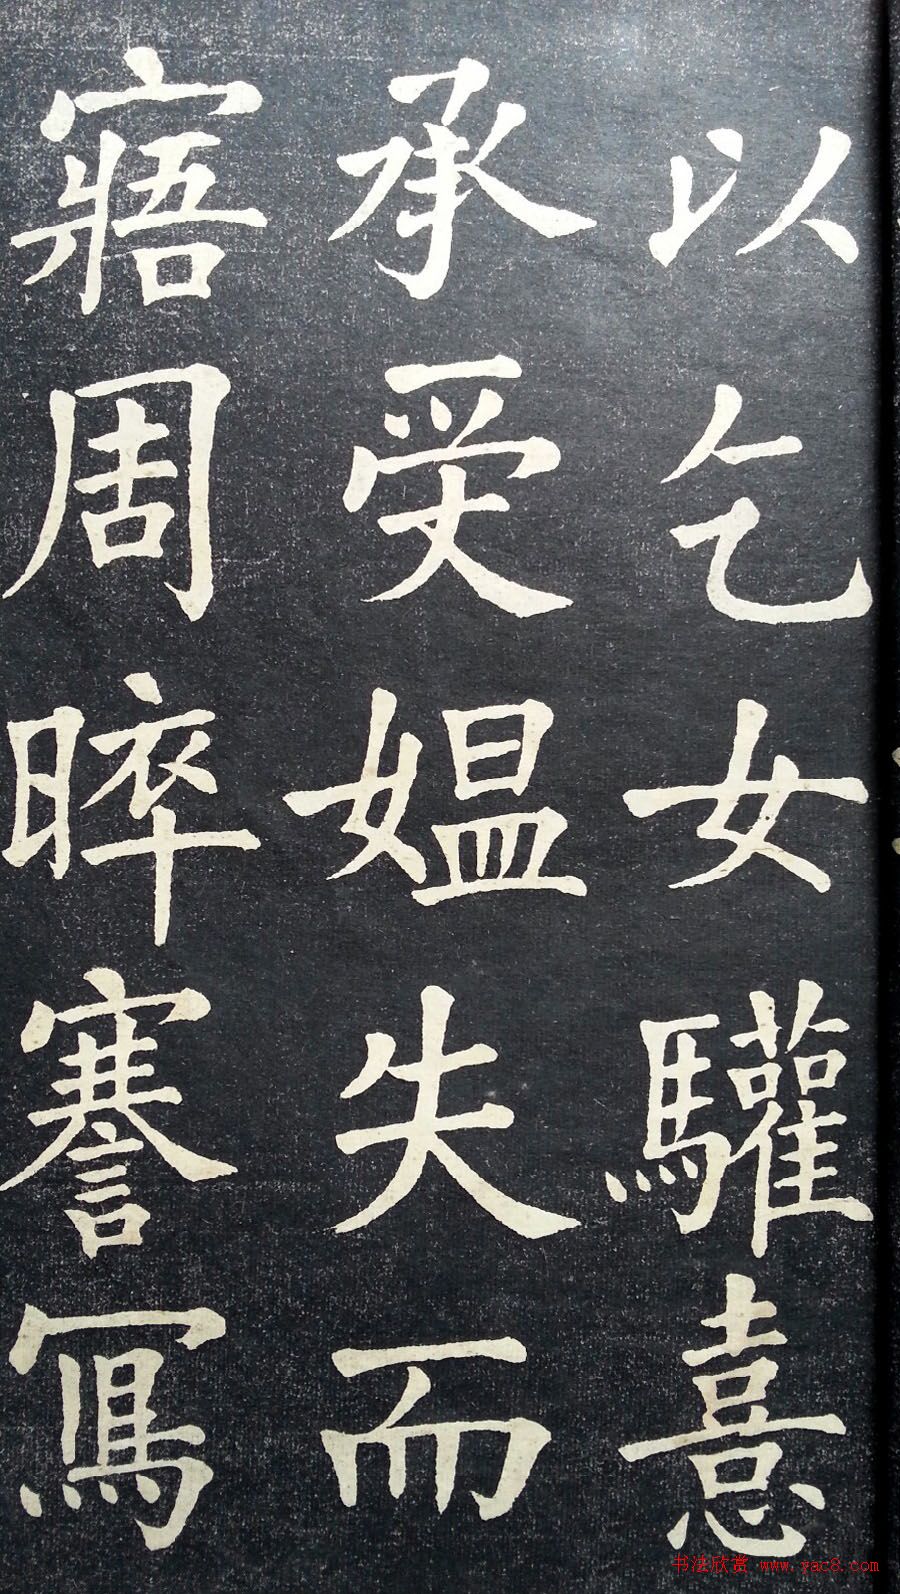 以乞女驩憙
承受媪失而
寤周晬謇寫
书法欣赏 www.yac8.com